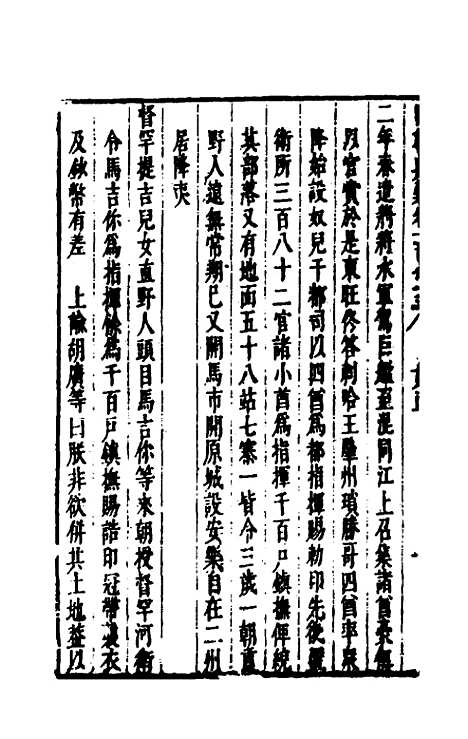 二年春遣將將水軍駕巨艦至混同江上召集諸酋長
以官賞於是東旺佟答剌哈王肇州瑣勝哥四酋率眾
降始設奴兒干都司以四酋為都指揮賜勑印先後
衛所三百八十二官諸小酋為指揮千百戶鎮撫俾統
其部落又有地面五十八站七寨一皆令三歲一朝直
野人遠無常期已又開馬市開原城設安樂自在二州
居降夷
督罕提吉兒女直野人頭目馬吉你等來朝授督罕河衛
令馬吉你為指揮餘為千百戶鎮撫賜誥印冠帶襲衣
及鈔幣有差 上諭胡廣等曰朕非欲併其土地蓋以